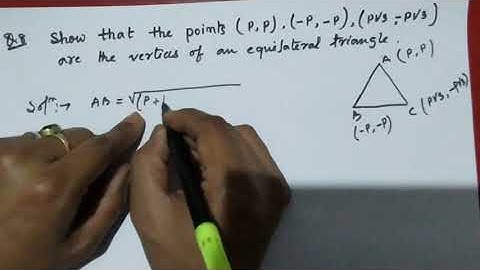 Q.8 Show that the points (P,P), (-P,-P), (P√3 -P√3)
are the vertics of an equilateral triangle.
A (P,P)
Solⁿ:→ AB = √(P+
B
C (P√3, -P√3)
(-P,-P)